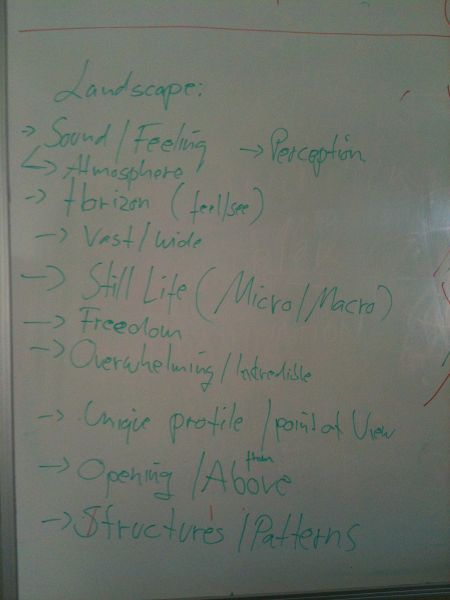 Landscape:
-> Sound / Feeling -> Perception
-> Atmosphere
-> Horizon (feel/see)
-> Vast / wide
-> Still Life (Micro / Macro)
-> Freedom
-> Overwhelming / Incredible
-> Unique profile / point of View
-> Opening / from Above
-> Structures / Patterns